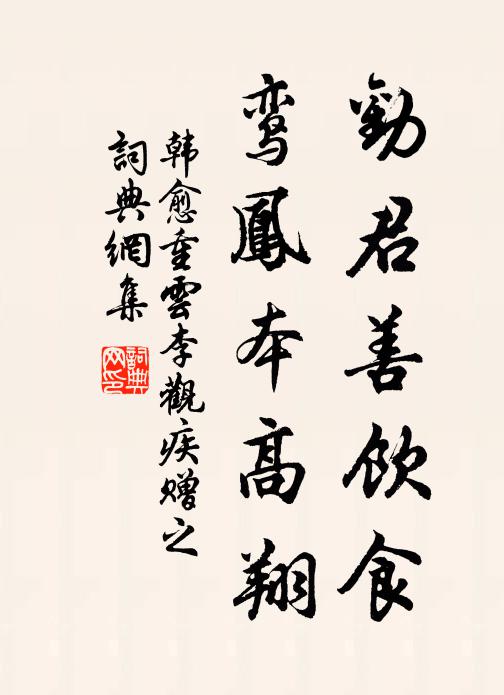 勸君善飲食
鸞鳳本高翔
韩愈重雲李觀疾赠之
詞典網集
詞典網印